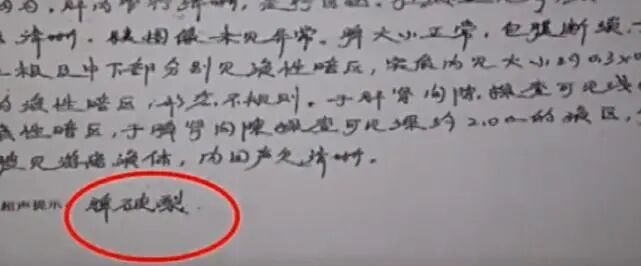 清晰。胰图像未见异常。脾大小正常，包膜断续，
上极及中下部分别见液性暗区，实质内见大小约0.3×0
的液性暗区，形态不规则。于肝肾间隙探查可见线
液性暗区，于脾肾间隙探查可见深约2.0cm的液区，
腔见游离液体，内回声欠清晰。
超声提示: 脾破裂